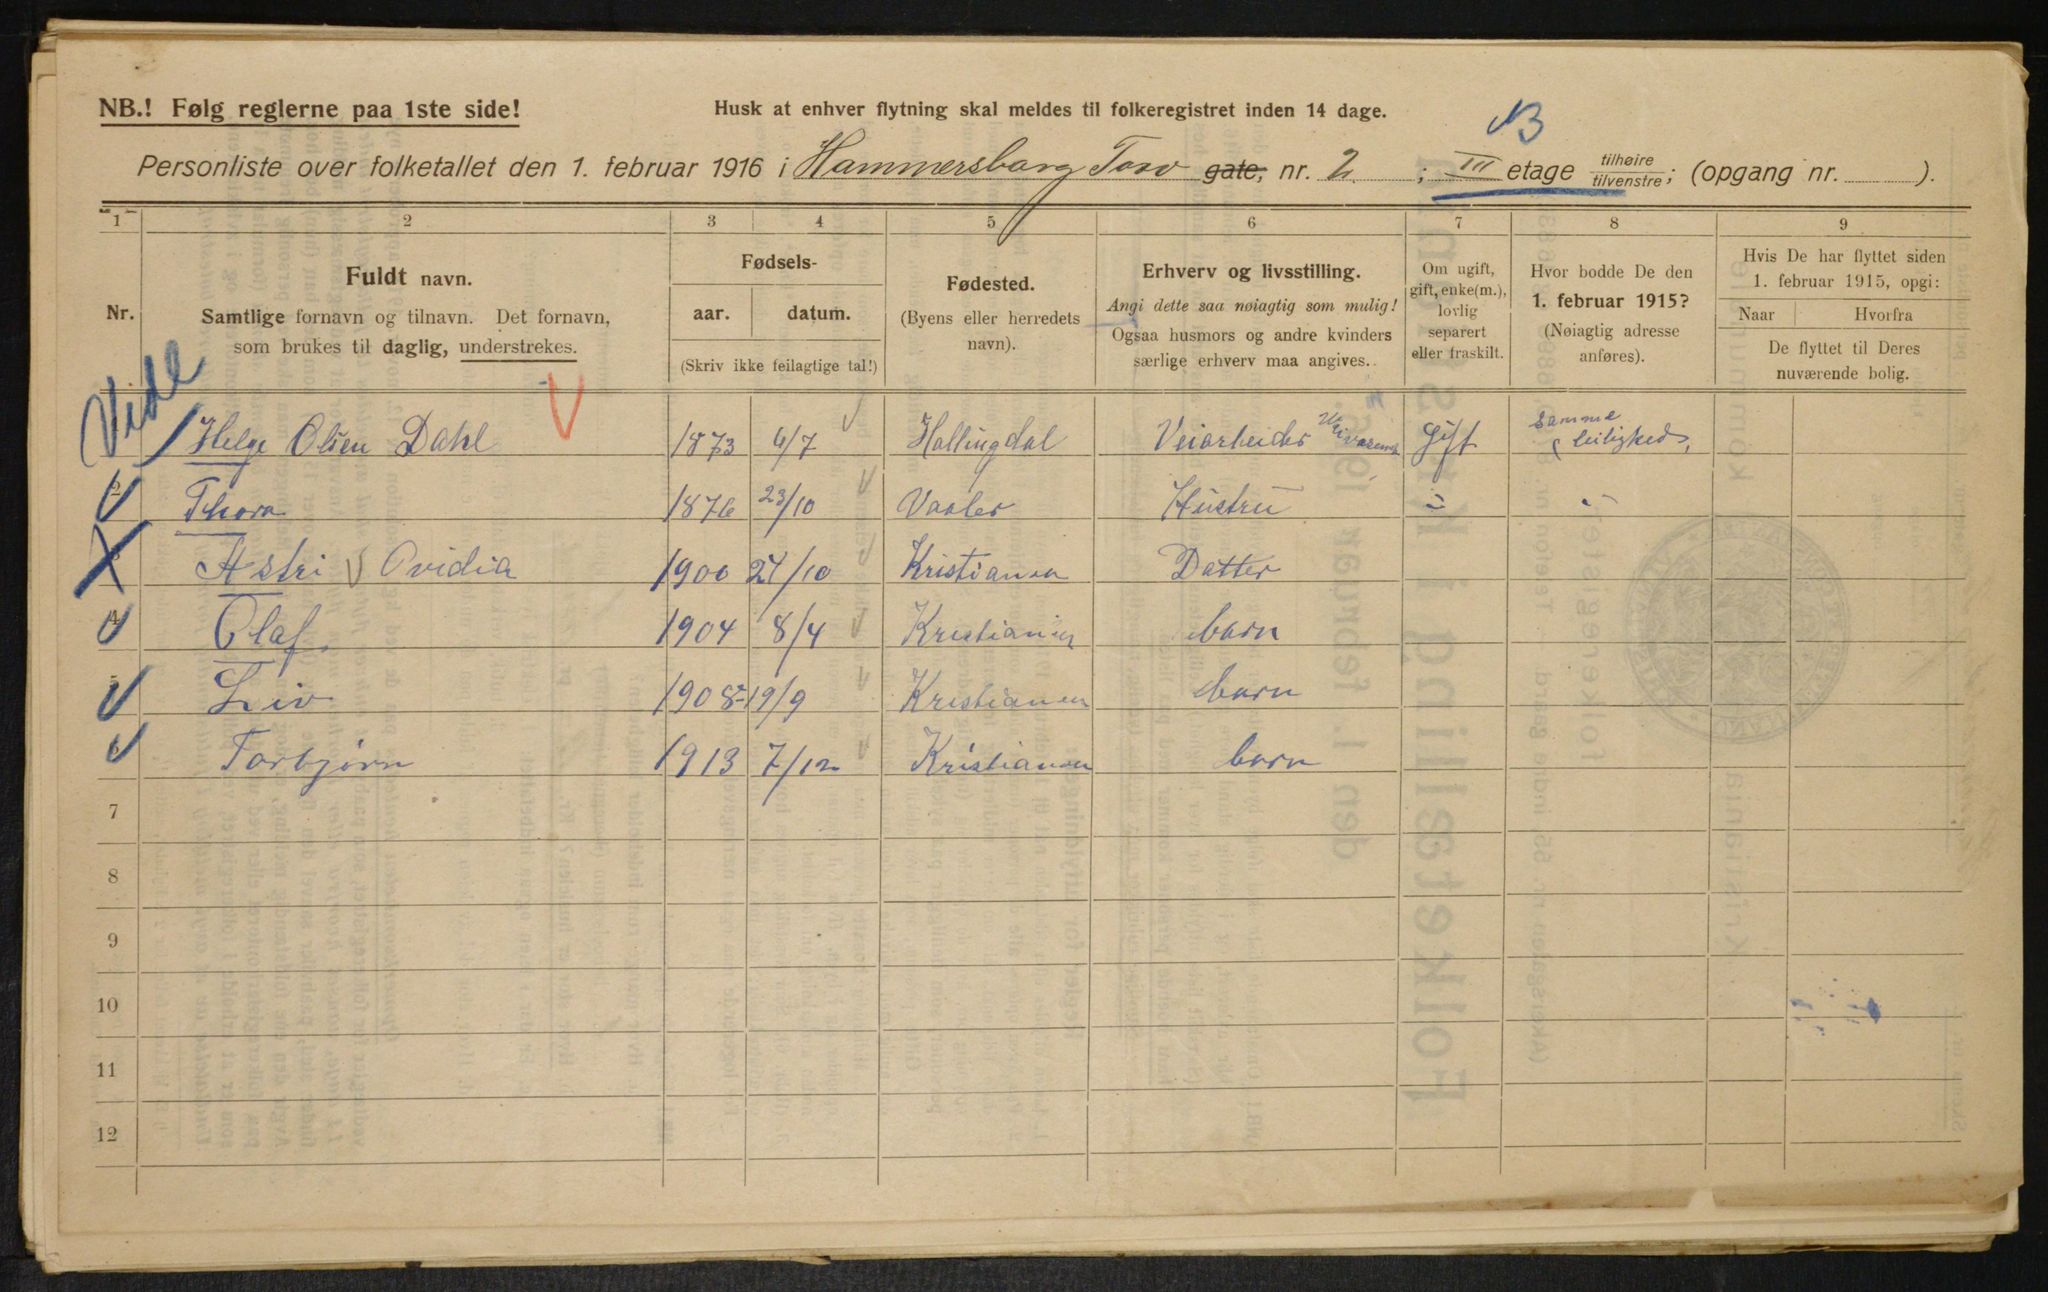 NB.! Følg reglerne paa 1ste side!
Husk at enhver flytning skal meldes til folkeregistret inden 14 dage.
Personliste over folketallet den 1. februar 1916 i Hammersborg Torv gate, nr. 2 ; III etage tilhøire tilvenstre ; (opgang nr. ).
1 2 3 4 5 6 7 8 9
Nr.
Fuldt navn.
Samtlige fornavn og tilnavn. Det fornavn,
som brukes til daglig, understrekes.
Fødsels-
aar. datum.
(Skriv ikke feilagtige tal!)
Fødested.
(Byens eller herredets
navn).
Erhverv og livsstilling.
Angi dette saa nøiagtig som mulig!
Ogsaa husmors og andre kvinders
særlige erhverv maa angives.
Om ugift,
gift, enke(m.),
lovlig
separert
eller fraskilt.
Hvor bodde De den
1. februar 1915?
(Nøiagtig adresse
anføres).
Hvis De har flyttet siden
1. februar 1915, opgi:
Naar Hvorfra
De flyttet til Deres
nuværende bolig.
Vide
Helge Olsen Dahl 1873 6/7 Hallingdal Veiarbeider Gift Samme leilighed,
2 Thora 1876 23/10 Vaaler Hustru " "
3 Astri Ovidia 1900 24/10 Kristiania Datter
4 Olaf. 1904 8/4 Kristiania barn
5 Liv 1908 19/9 Kristiania barn
6 Torbjørn 1913 7/12 Kristiania barn
7
8
9
10
11
12